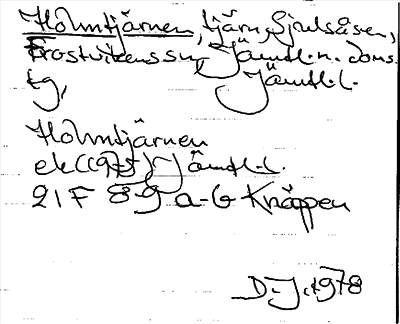 Holmtjärnen, tjärn, Sjulsåsen,
Frostvikens sn, Jämtl. n. doms.
tg, Jämtl. l.
Holmtjärnen
ek (1975) Jämtl. l.
21F 8-9 a-b Knäppen
D. J. 1978